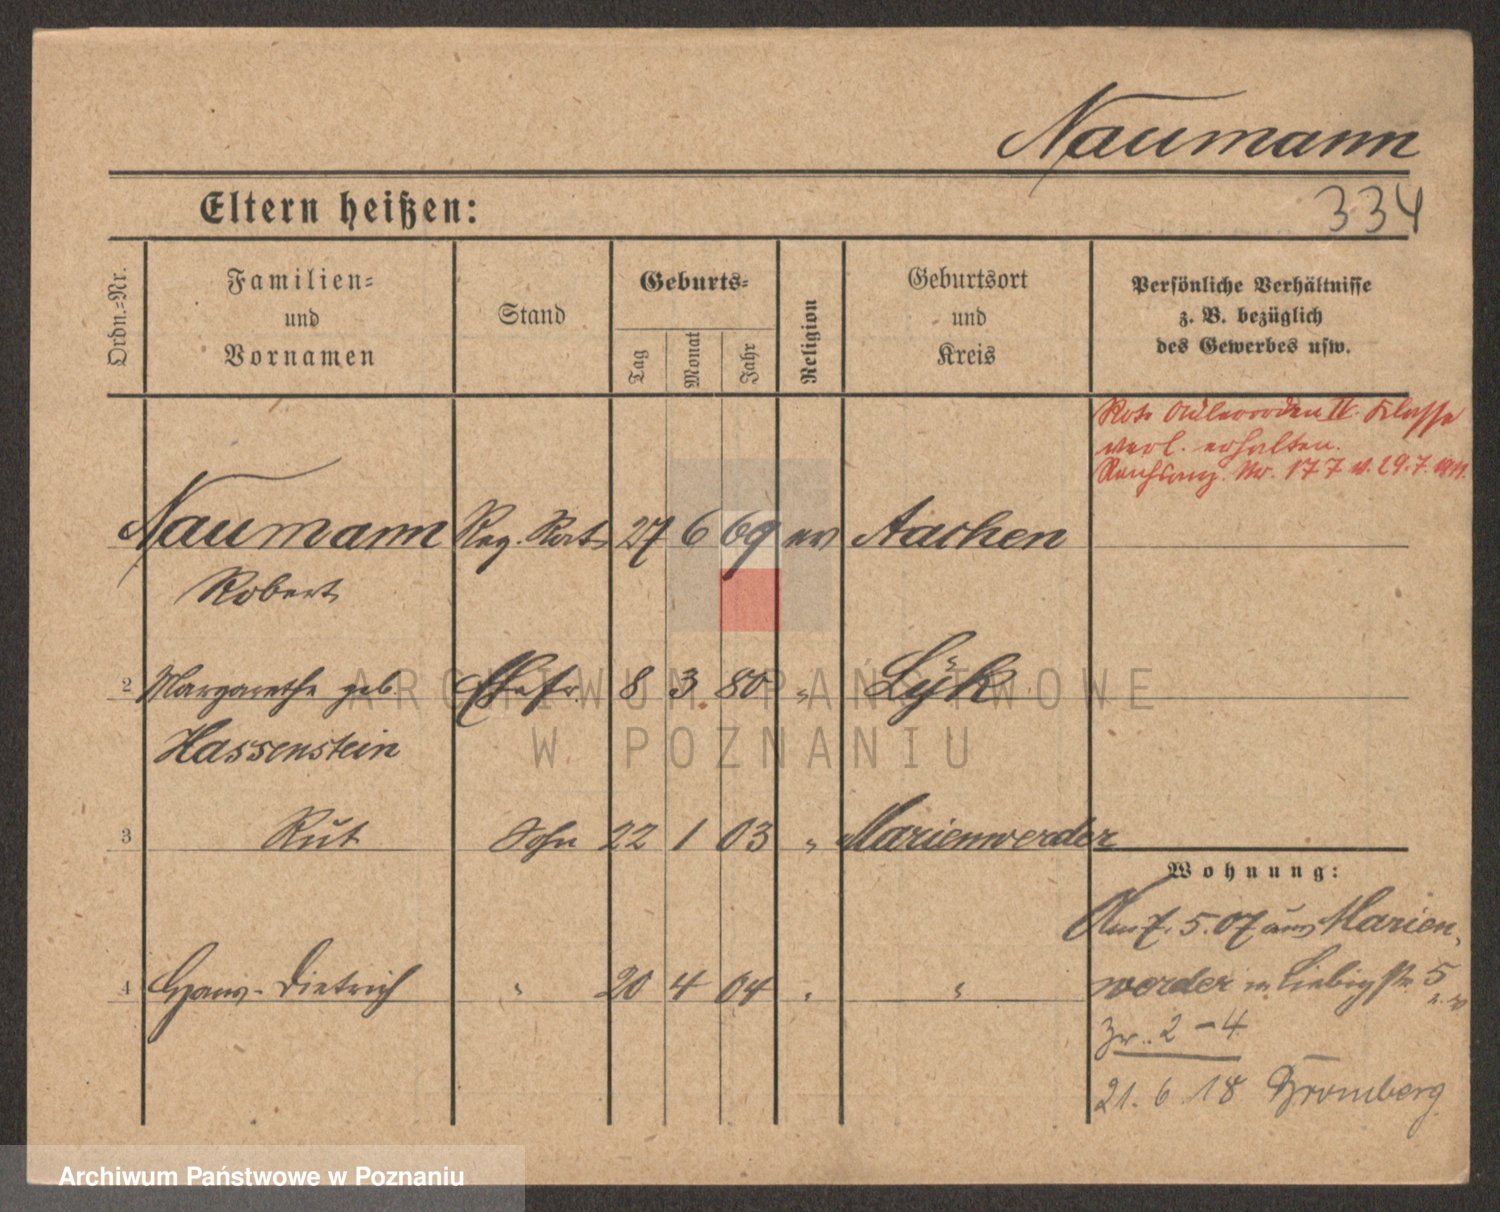 Naumann
Eltern heißen:
334
Ordn.-Nr.
Familien-
und
Vornamen
Stand
Geburts-
Tag
Monat
Jahr
Religion
Geburtsort
und
Kreis
Persönliche Verhältnisse
z. B. bezüglich
des Gewerbes usw.
Rote Adlerorden IV. Klasse
verl. erhalten.
Reichsanz. Nr. 177 v. 29.7.
Naumann Reg. Rat 27 6 69 ev Aachen
Robert
2 Margarethe geb. Ehefr. 8 3 80 " Lÿk
Hassenstein
3 Rut Sohn 22 1 03 " Marienwerder
Wohnung:
Am 7. 5. 07 aus Marien-
4 Hans-Dietrich " 20 4 04 " "
werder n. Liebigstr. 5
Zw. 2 - 4
21. 6. 18 Bromberg
ARCHIWUM PAŃSTWOWE
W POZNANIU
Archiwum Państwowe w Poznaniu